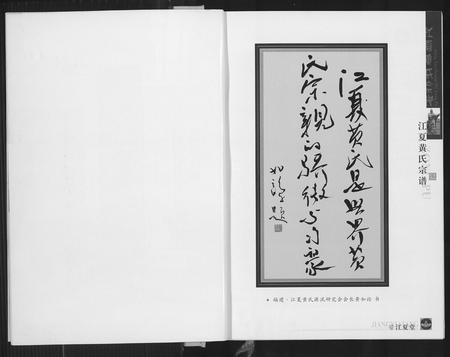 江夏黄氏是世界黄
氏宗亲的骄傲与自豪
如论题
福建·江夏黄氏源流研究会会长黄如论 书
江夏黄氏宗谱
江夏堂